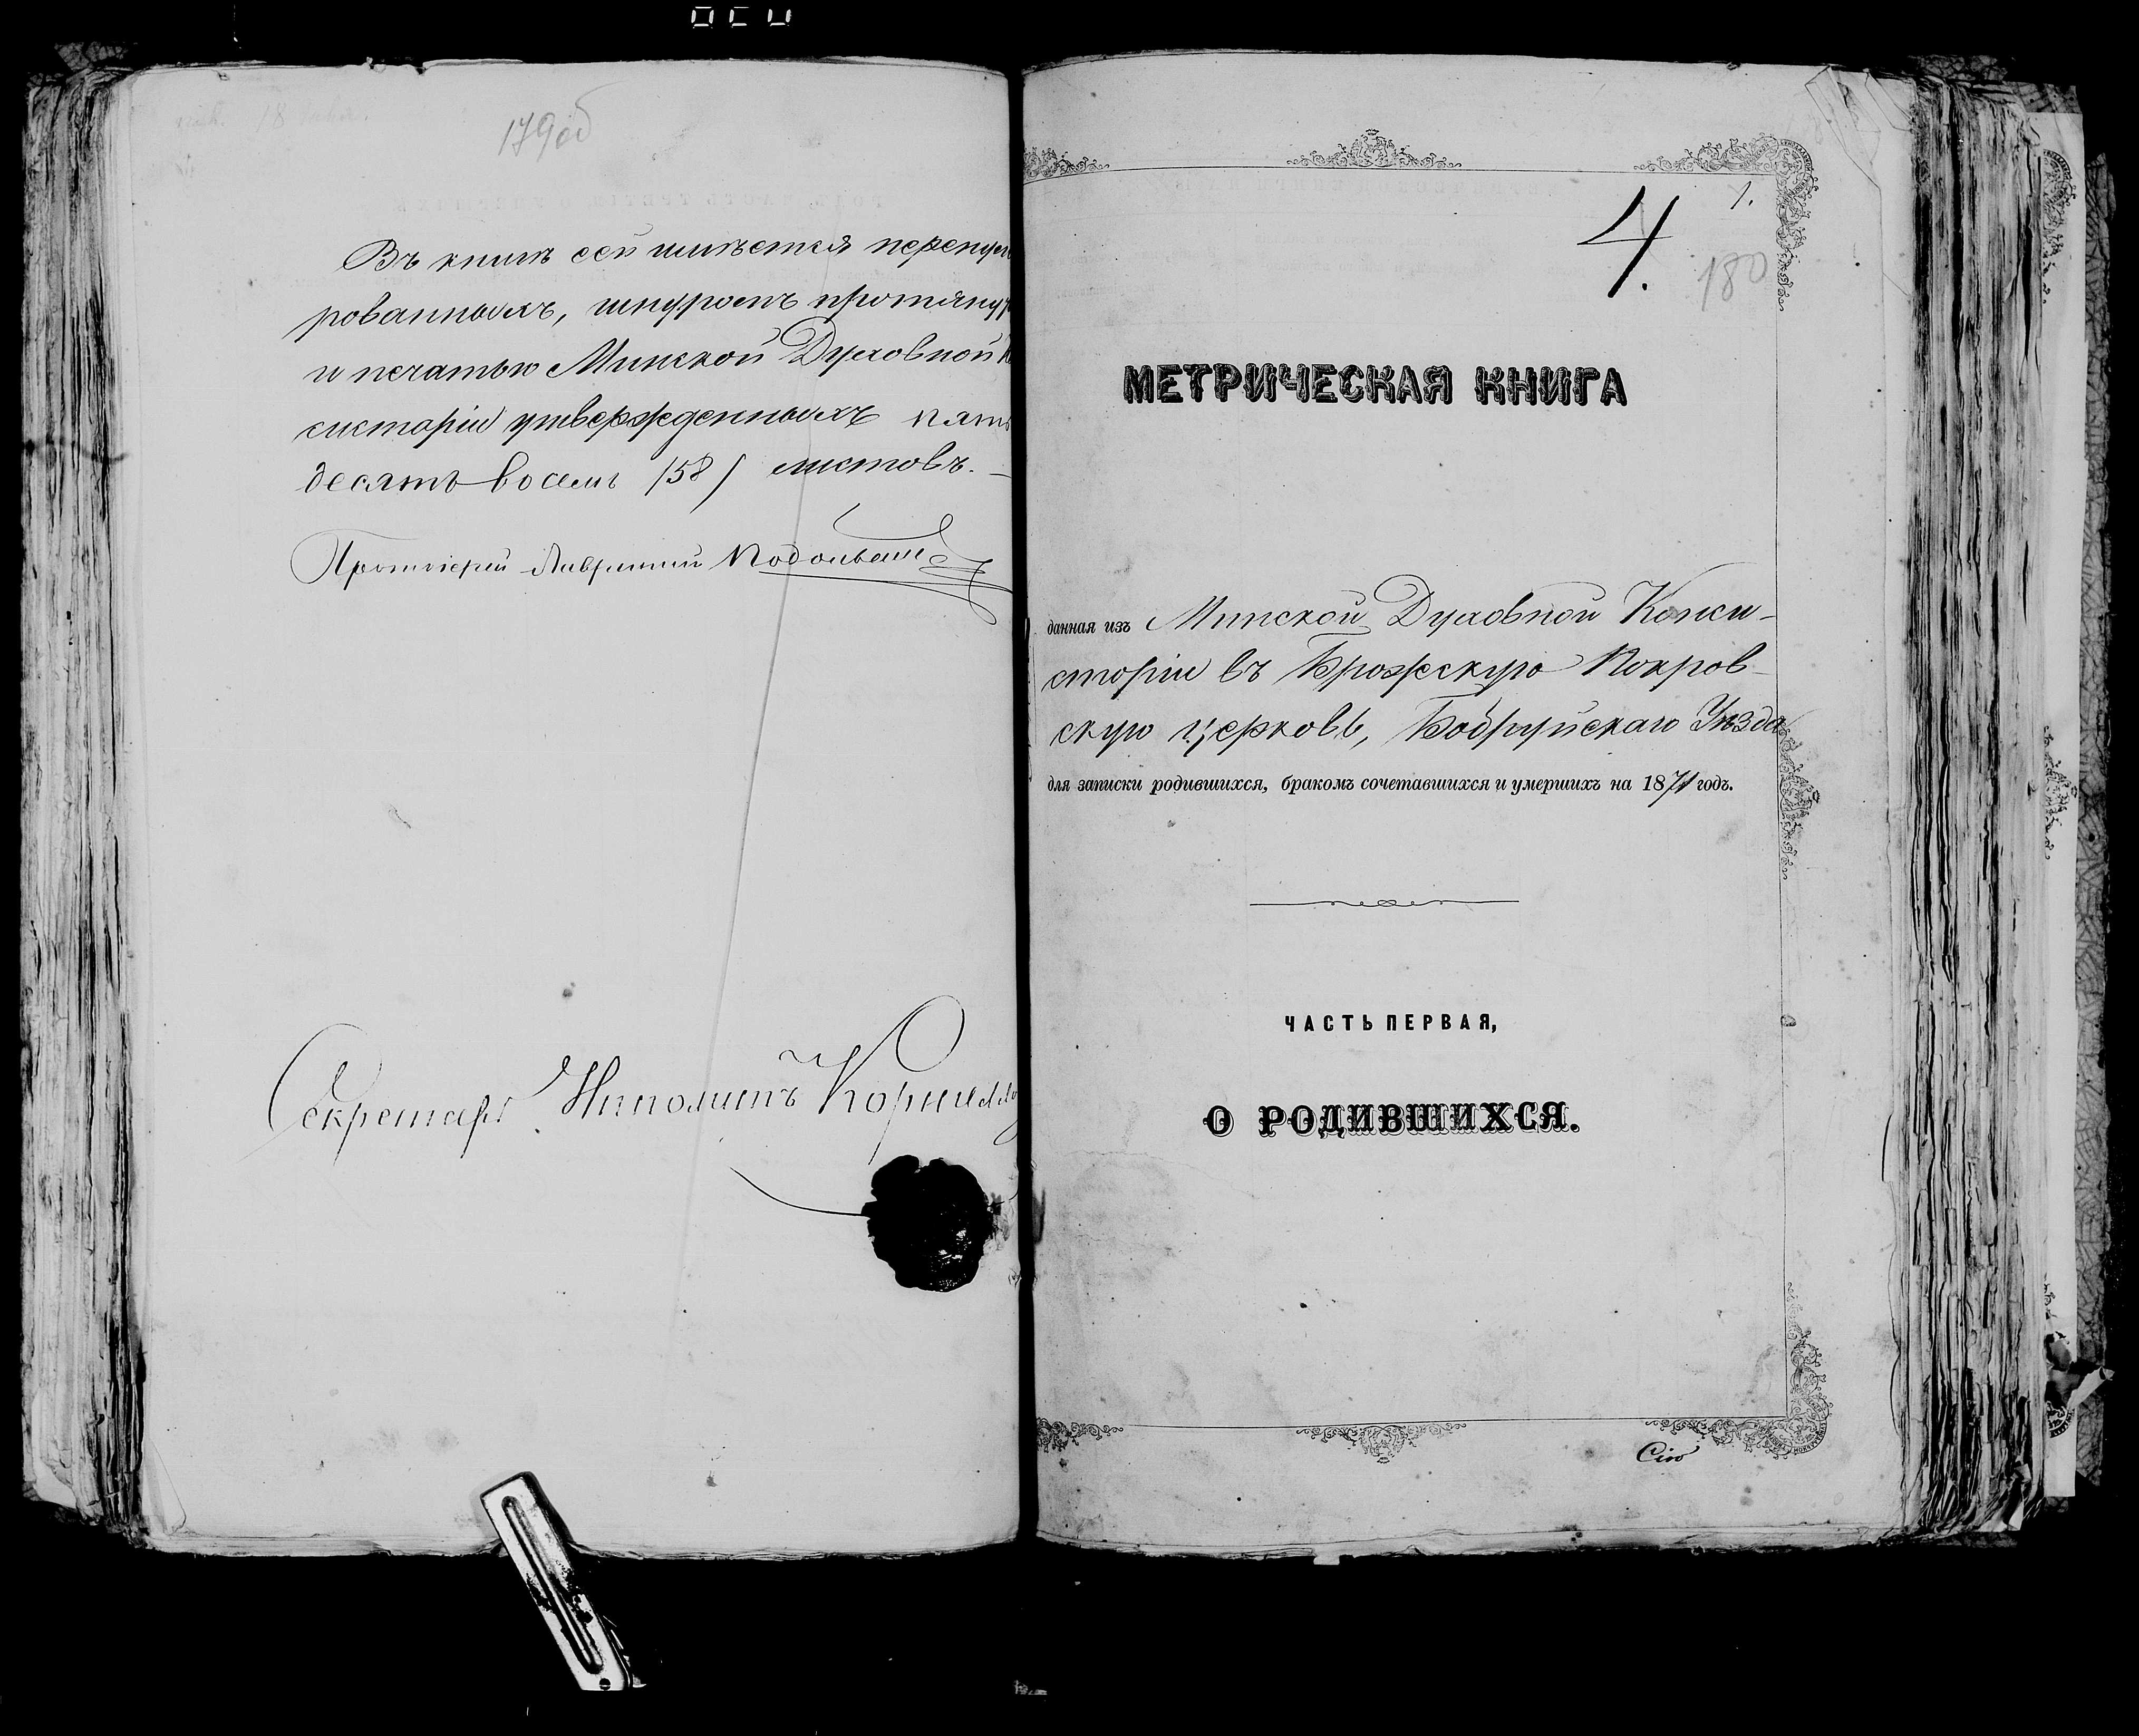 179об
Въ книгѣ сей имѣется перенуме
рованныхъ, шнуромъ протяну
и печатью Минской Духовной К
систоріи утвержденныхъ пять
десятъ восемь /58/ листовъ.
Протоіерей Лаврентій
Секретарь Ипполитъ
1.
4.
180
МЕТРИЧЕСКАЯ КНИГА
данная изъ Минской Духовной Конси-
сторіи въ Брожскую Покров-
скую церковь, Бобруйскаго Уѣзда
для записки родившихся, бракомъ сочетавшихся и умершихъ на 1871 годъ.
ЧАСТЬ ПЕРВАЯ,
О РОДИВШИХСЯ.
Сію